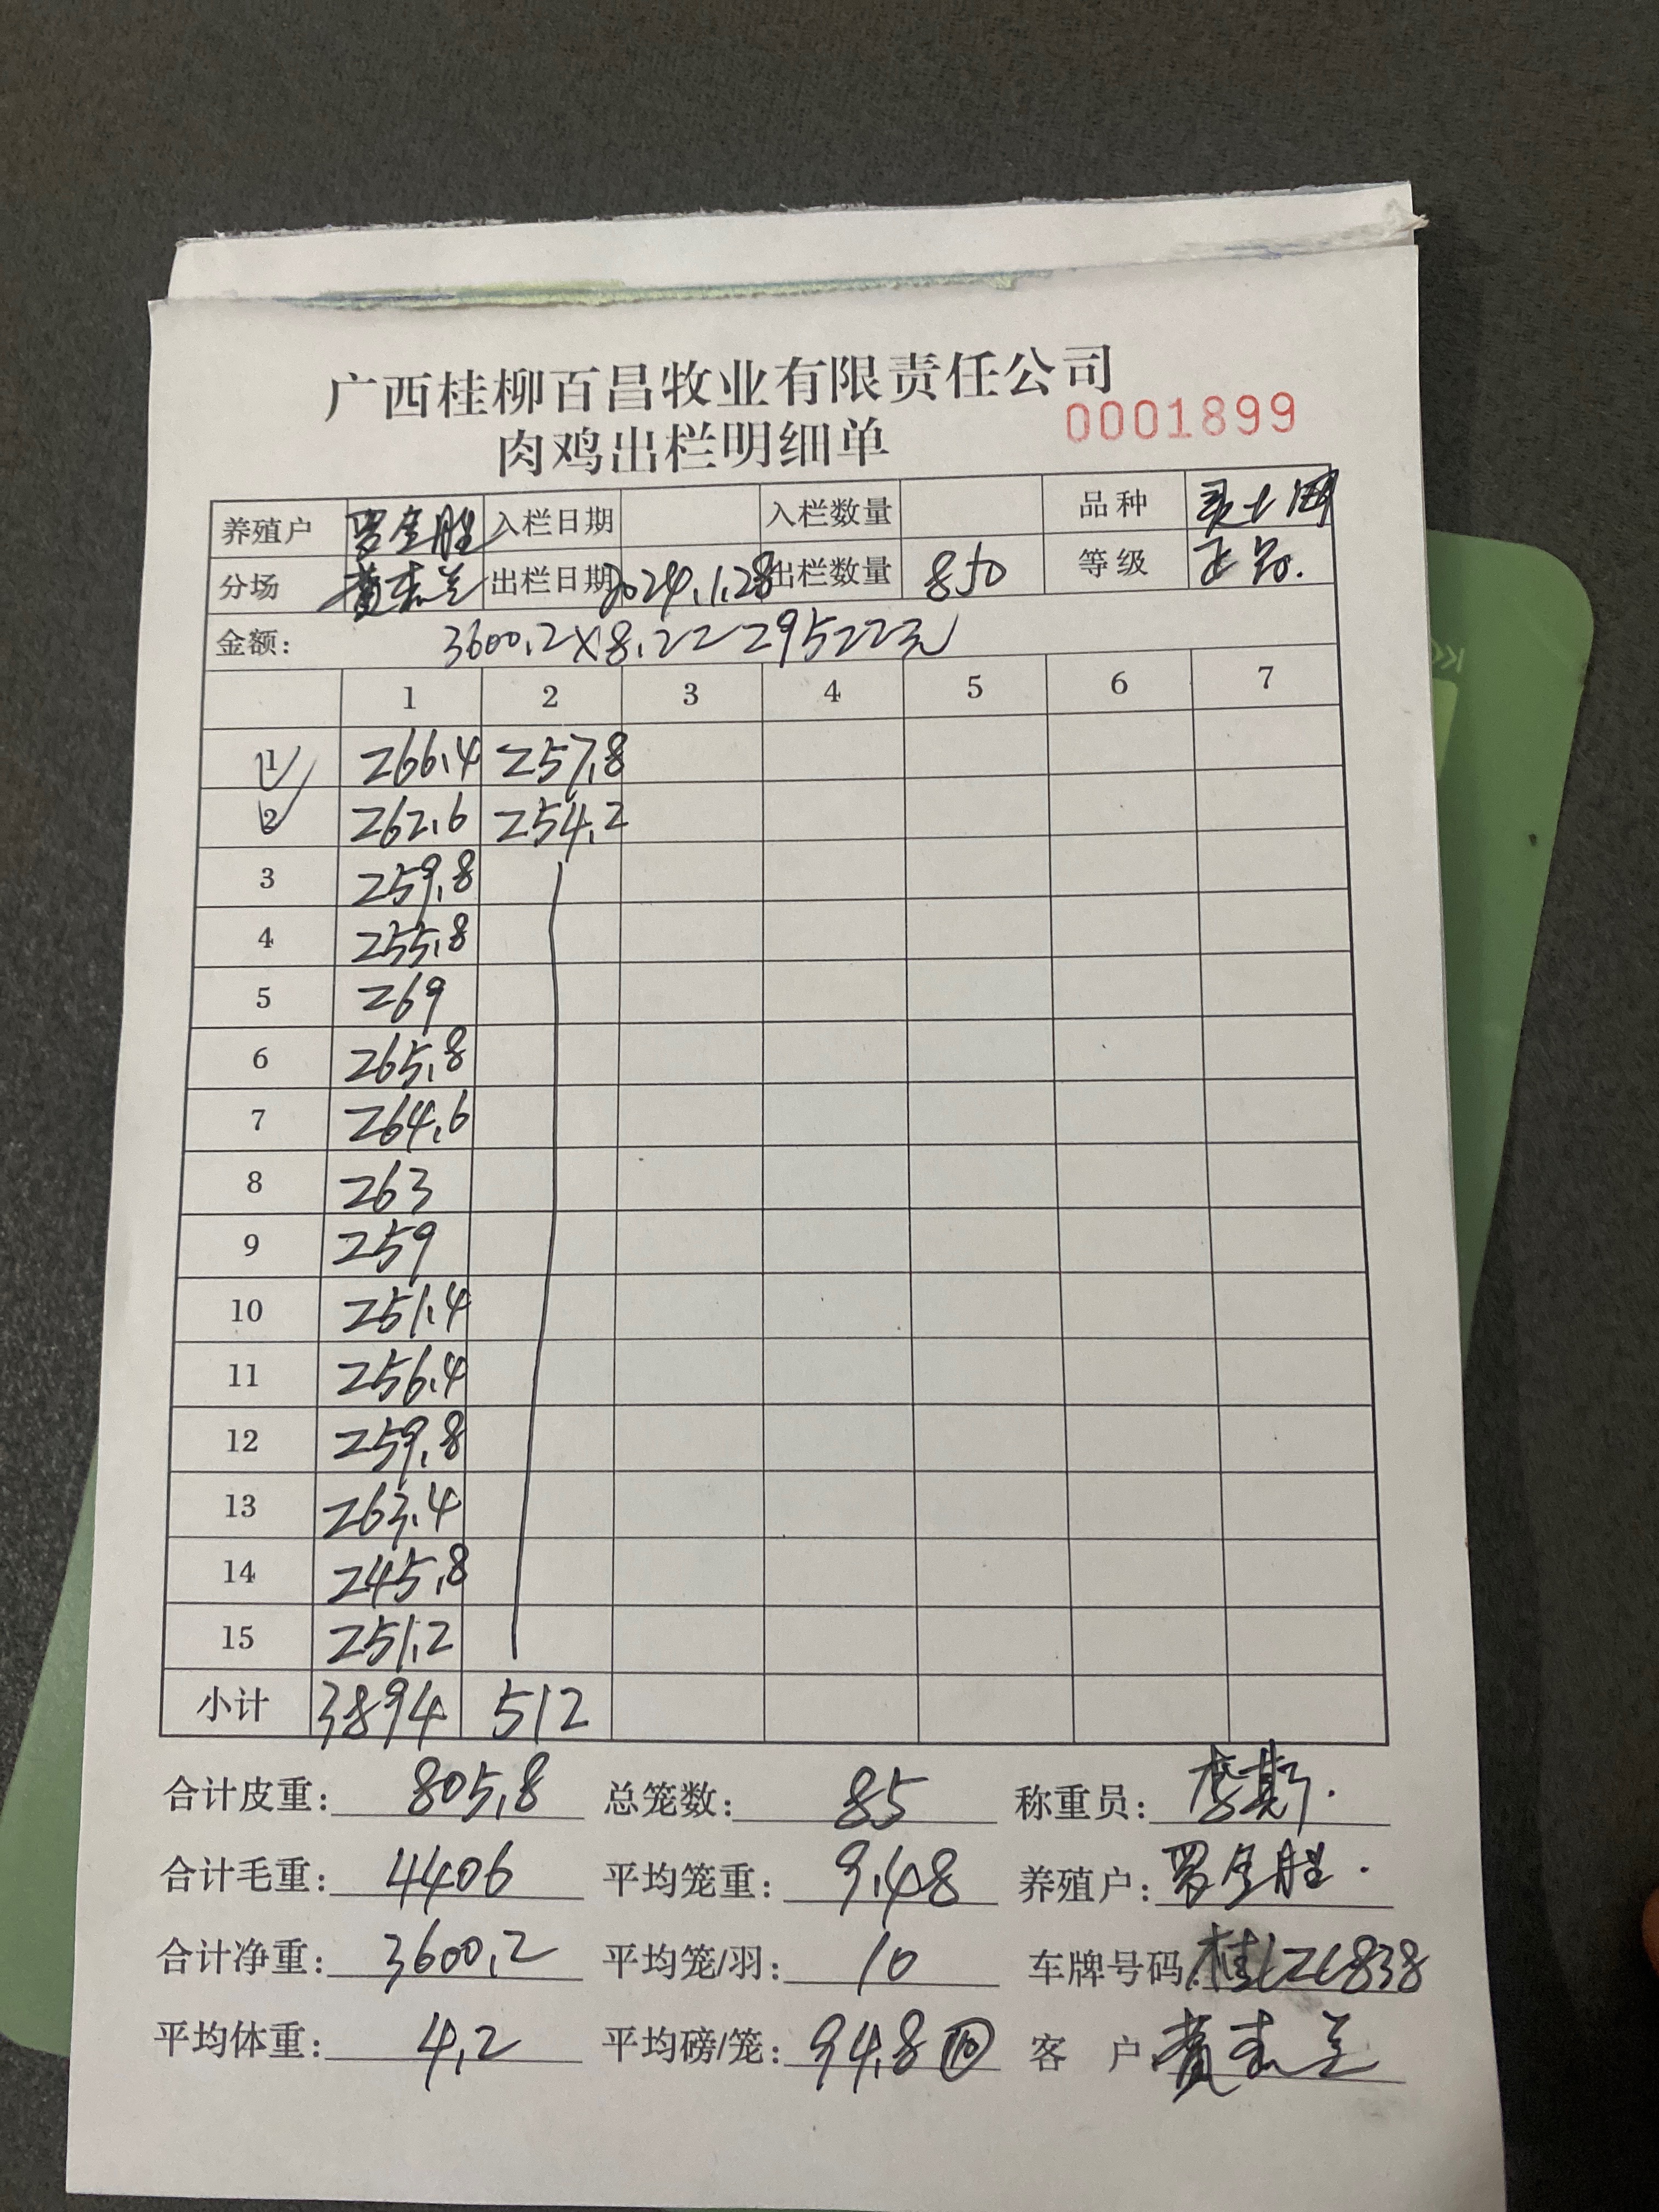 广西桂柳百昌牧业有限责任公司
肉鸡出栏明细单 0001899
养殖户 罗金胜 入栏日期 入栏数量 品种
分场 出栏日期 2024.1.28 出栏数量 850 等级 正品.
金额: 3600.2×8.2=29522元
1 2 3 4 5 6 7
1 266.4 257.8
2 262.6 254.2
3 259.8
4 255.8
5 269
6 265.8
7 264.6
8 263
9 259
10 251.4
11 256.4
12 259.8
13 263.4
14 245.8
15 251.2
小计 3894 512
合计皮重: 805.8 总笼数: 85 称重员:
合计毛重: 4406 平均笼重: 9.48 养殖户: 罗金胜.
合计净重: 3600.2 平均笼/羽: 10 车牌号码:
平均体重: 4.2 平均磅/笼: 94.8 ⑩ 客 户: